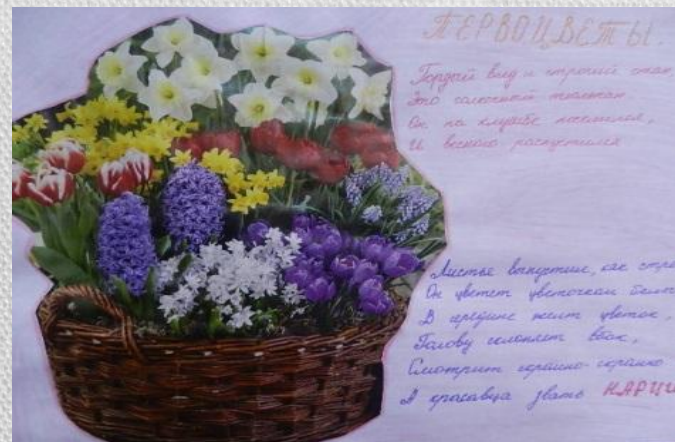 ПЕРВОЦВЕТЫ.
Гордый вид и строгий стан,
Это солнечный тюльпан
Он на клумбе поселился,
И весною распустился
Листья вытянше, как стре
Он цветет цветочком белы
В середине желт цветок,
Голову склоняет вбок,
Смотрит скромно-скромно
А красавца звать НАРЦИ